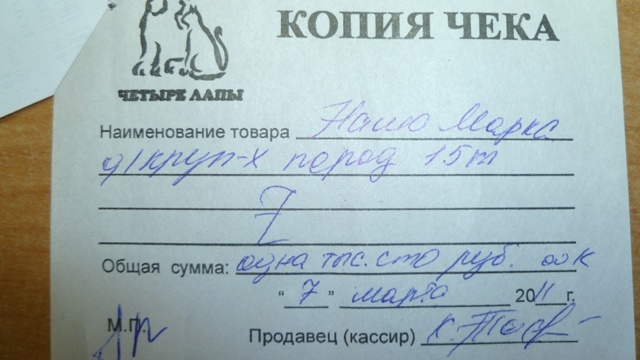 КОПИЯ ЧЕКА
ЧЕТЫРЕ ЛАПЫ
Наименование товара Наша Марка
д/круп-х пород 15
Общая сумма: одна тыс. сто руб. ook
"7" марта 2011г.
М.П.
Продавец (кассир)